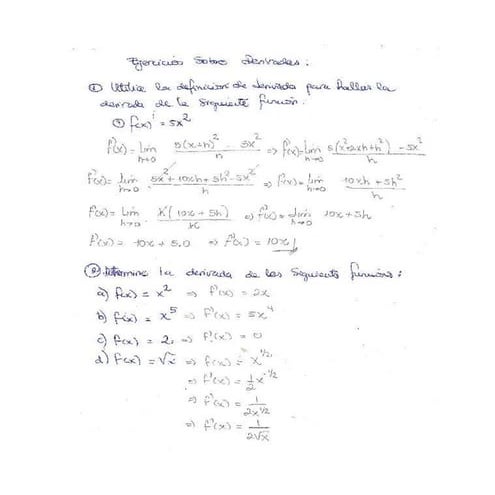 Ejercicios sobre Derivadas:
① Utilice la definicion de derivada para hallar la
derivada de la siguiente funcion.
① f(x) = 5x²
f'(x) = lim h→0 5(x+h)² - 5x² / h ⇒ f'(x) = lim h→0 5(x²+2xh+h²) - 5x² / h
f'(x) = lim h→0 5x² + 10xh + 5h² - 5x² / h ⇒ f'(x) = lim h→0 10xh + 5h² / h
f'(x) = lim h→0 h(10x + 5h) / h ⇒ f'(x) = lim h→0 10x + 5h
f'(x) = 10x + 5.0 ⇒ f'(x) = 10x
② Determine la derivada de las siguients funcions:
a) f(x) = x² ⇒ f'(x) = 2x
b) f(x) = x⁵ ⇒ f'(x) = 5x⁴
c) f(x) = 2 ⇒ f'(x) = 0
d) f(x) = √x ⇒ f(x) = x^1/2
⇒ f'(x) = 1/2 x^-1/2
⇒ f'(x) = 1 / 2x^1/2
⇒ f'(x) = 1 / 2√x